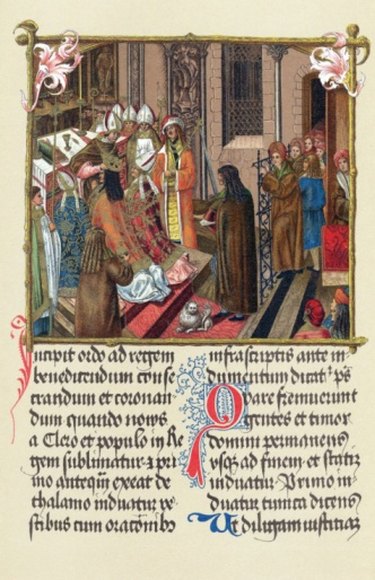 Incipit ordo ad regem
benedicendum conse
crandum et coronan
dum quando novus
a Clero et populo in Re
gem sublimatur · et pri
mo antequã exeat de
thalamo induatur ve
stibus cum oratoñibꝰ
infrascriptis ante in-
dumentum dicatʳ p̄s
Quare fremuerunt
gentes et timor
domini permanens
vsqꝫ ad finem et statiz
induatur · Primo in-
duatur tunica dicens
Ut diligam iustitiaz